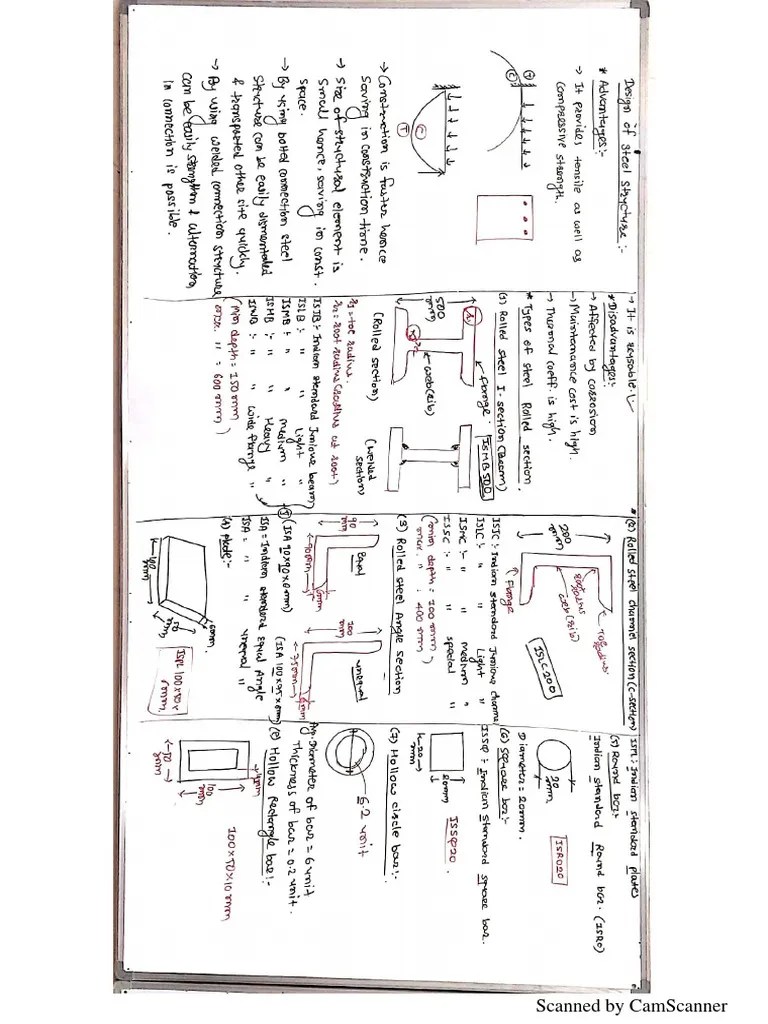 Design of Steel Structure :-
* Advantages :-
→ It provides tensile as well as
compressive strength.
T
C
C
T
→ Construction is faster hence
saving in construction time.
→ Size of structural element is
small hence, saving in const.
space.
→ By using bolted connection steel
structure can be easily dismentaled
& transported other site quickly.
→ By using welded connection structure
can be easily strengthen & alternation
in connection is possible.
→ It is reusable.
* Disadvantages :-
→ Affected by corrosion
→ Maintenance cost is high.
→ Thermal coeff. is high.
* Types of Steel Rolled section.
(1) Rolled steel I-section (Beam)
flange.
ISMB 500
500
mm
web (rib)
(Rolled section)
(welded
section)
r1 = toe radius.
r2 = root radius (radius at root)
ISJB :- Indian standard Juniour beam
ISLB :- " " Light "
ISMB :- " " medium "
ISHB :- " " Heavy "
ISWB :- " " wide flange "
(Min depth = 150 mm
max. " = 600 mm)
(2) Rolled steel channel section (C-section)
200
mm
Toe radius
Root radius
web (rib)
flange
ISLC 200
ISJC :- Indian standard Juniour channel
ISLC :- " " Light "
ISMC :- " " medium "
ISSC :- " " special "
(min depth = 100 mm
max. " = 400 mm)
(3) Rolled steel Angle section
Equal
unequal
90
mm
90mm
6mm
100
mm
75mm
(ISA 90x90x6mm)
(ISA 100x75x8mm)
ISA = Indian standard Equal Angle
ISA = " " unequal "
6mm.
50
mm
100
mm
ISPL 100x50x
6mm.
ISPL : Indian standard plates
(5) Round bar :-
Indian standard Round bar. (ISRO)
20
mm
ISRO20
Diameter = 20mm.
(6) square bar :-
ISSQ : Indian standard square bar.
20mm
20mm
ISSQ20
(7) Hollow circle bar :-
6.2 unit
Avg. Diameter of bar = 6 unit
Thickness of bar = 0.2 unit.
(8) Hollow Rectangle bar :-
100
mm
50
mm
100x50x10mm
Scanned by CamScanner